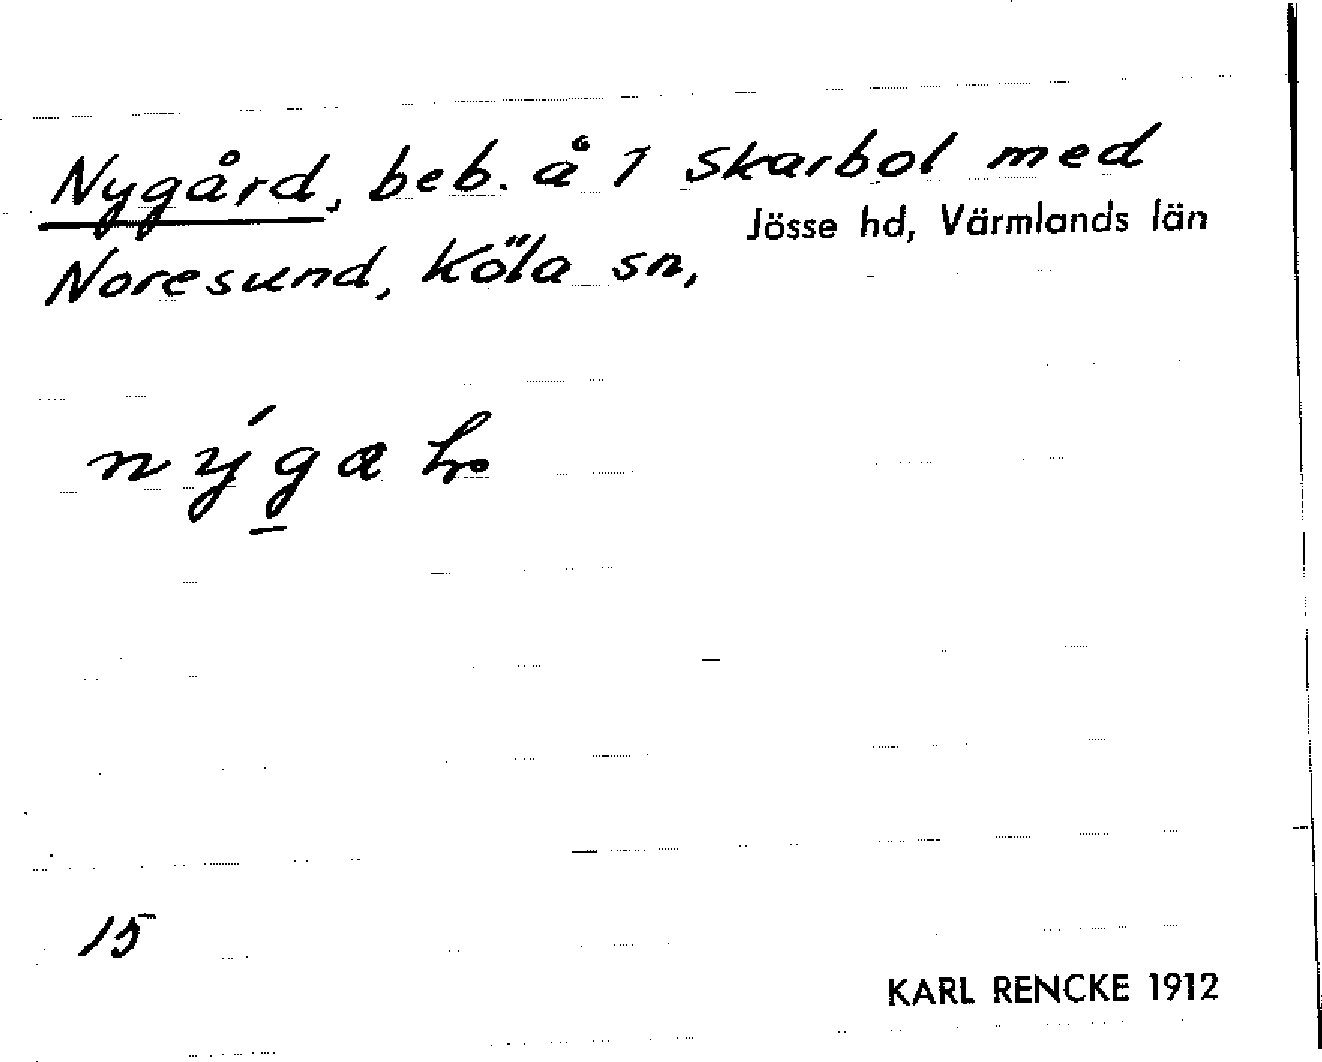 Nygård, beb. å 1 Skarbol med
Jösse hd, Värmlands län
Noresund, Köla sn,
15
KARL RENCKE 1912